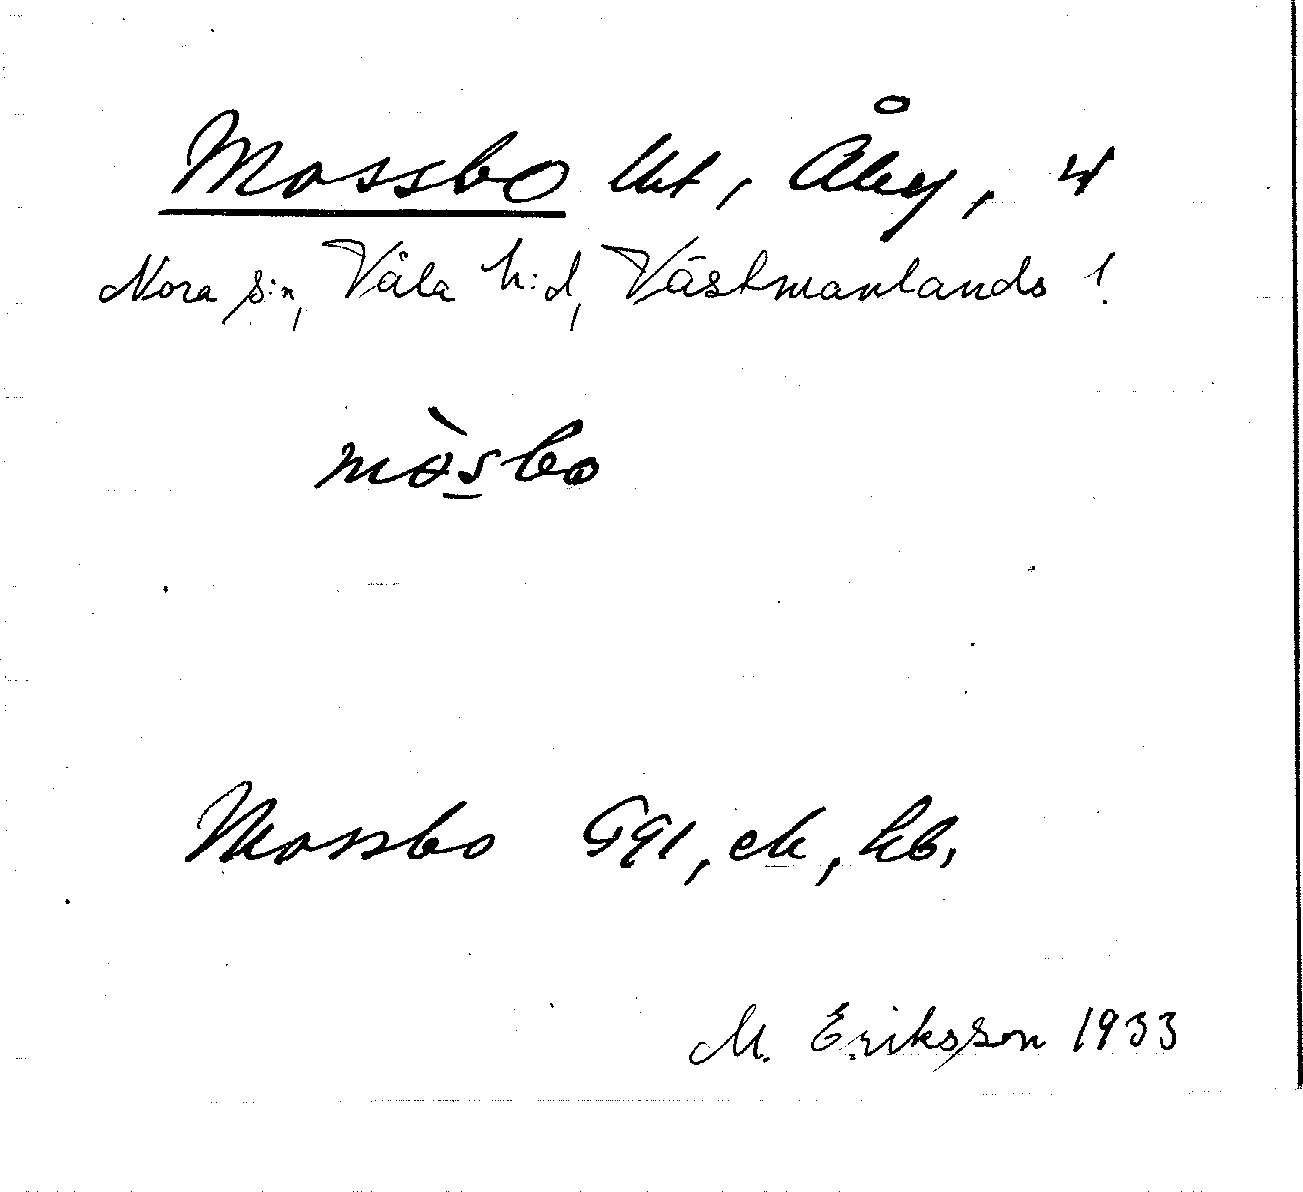 Mossbo lht, Åby, 4
Nora s:n, Våla h:d, Västmanlands l.
mòsbo
Mossbo G91, ek, hb.
M. Eriksson 1933